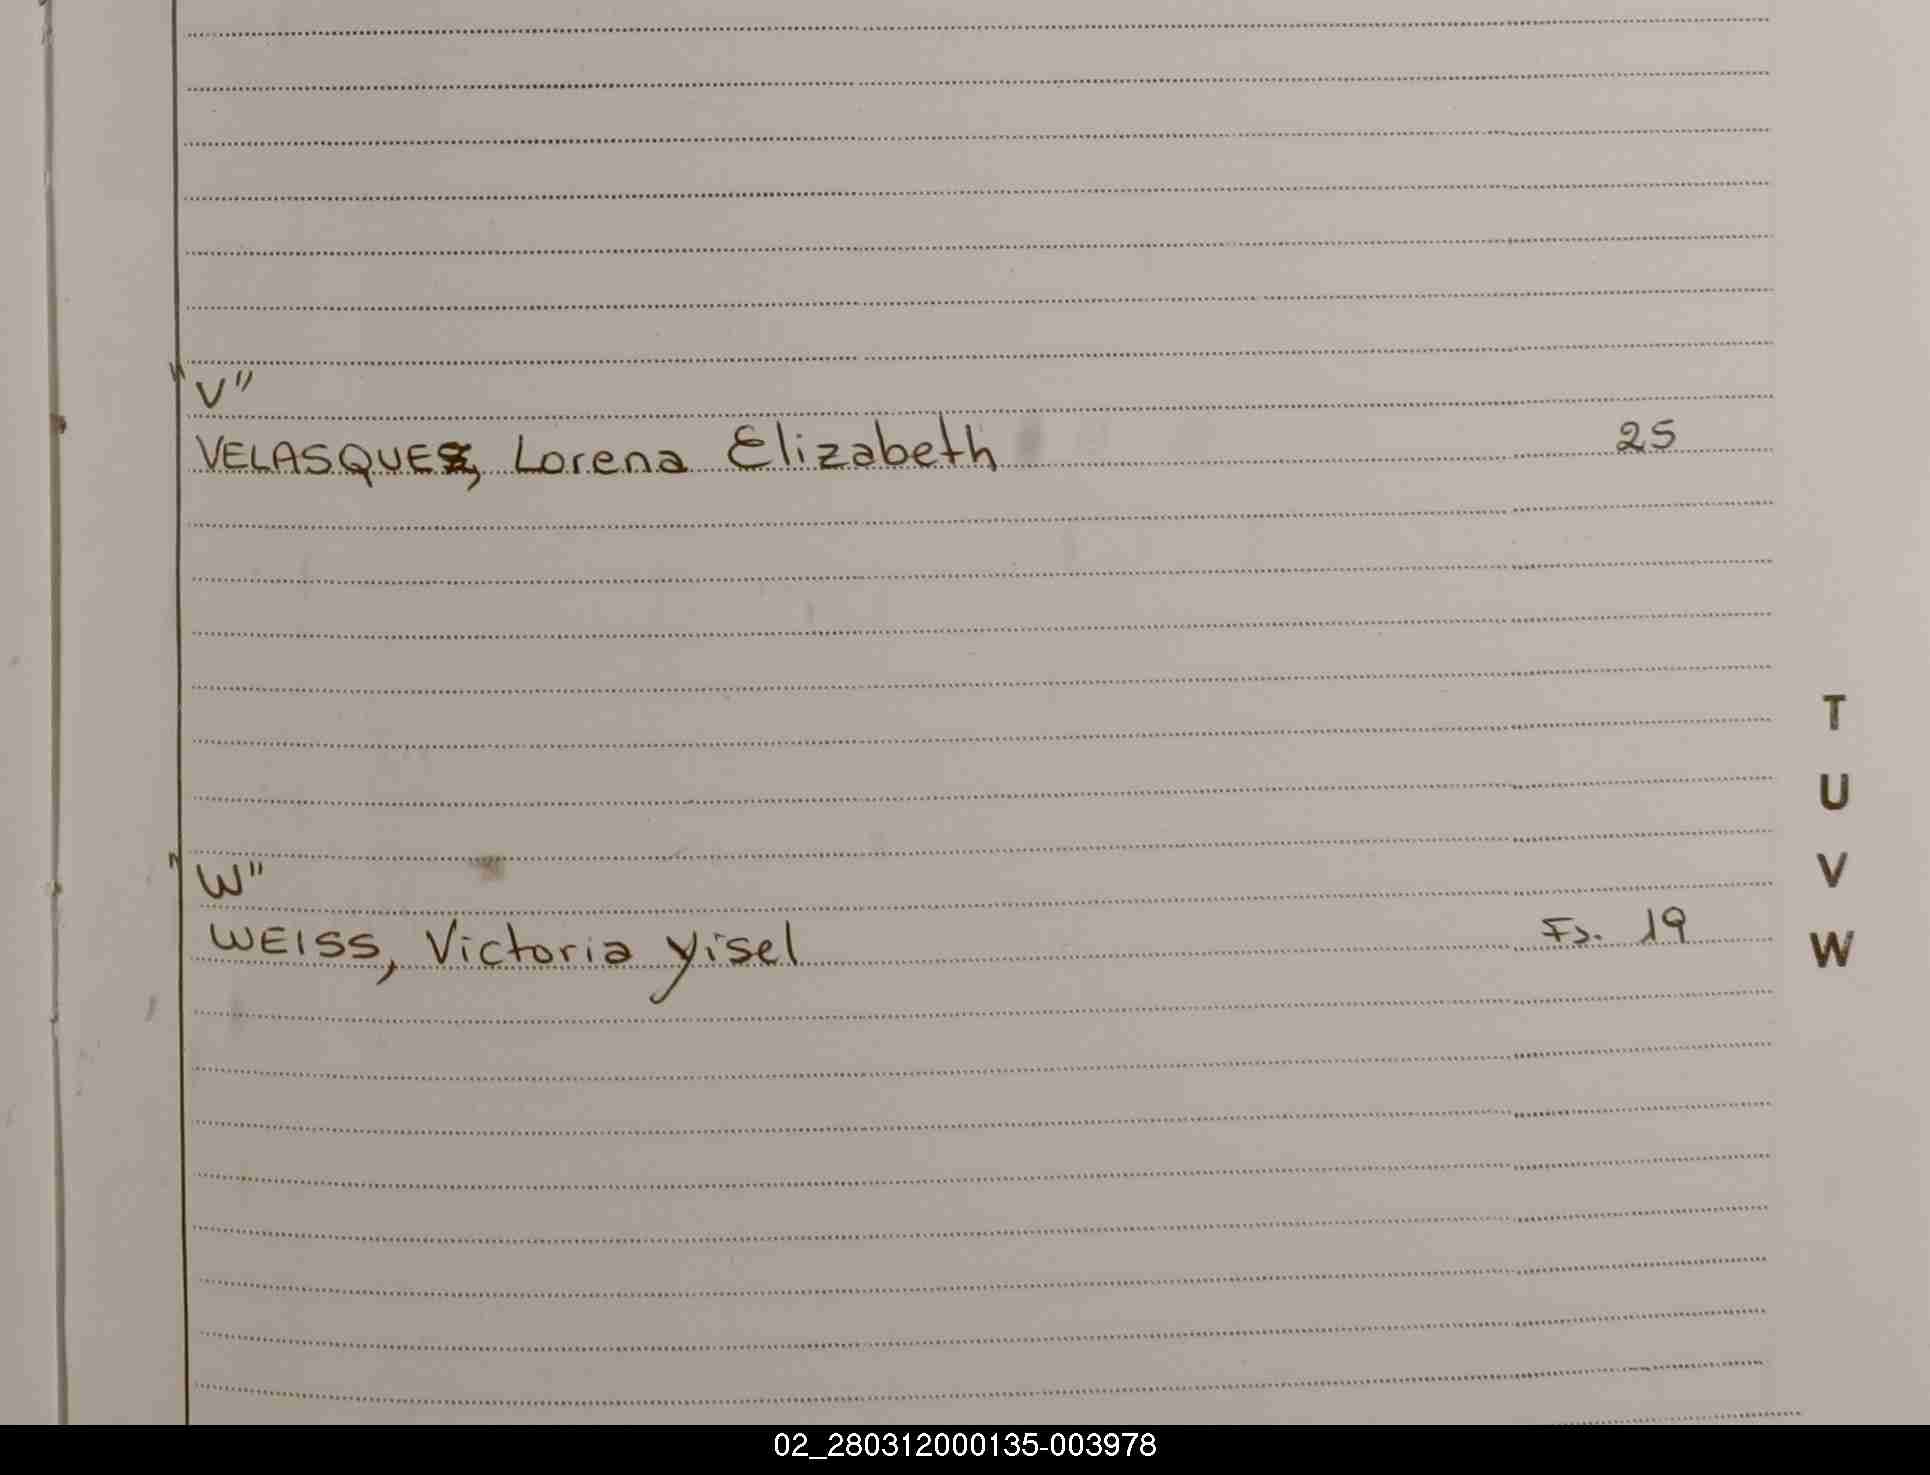 "V"
VELASQUEZ, Lorena Elizabeth 25
"W"
WEISS, Victoria Yisel Fs. 19
T
U
V
W
02_280312000135-003978